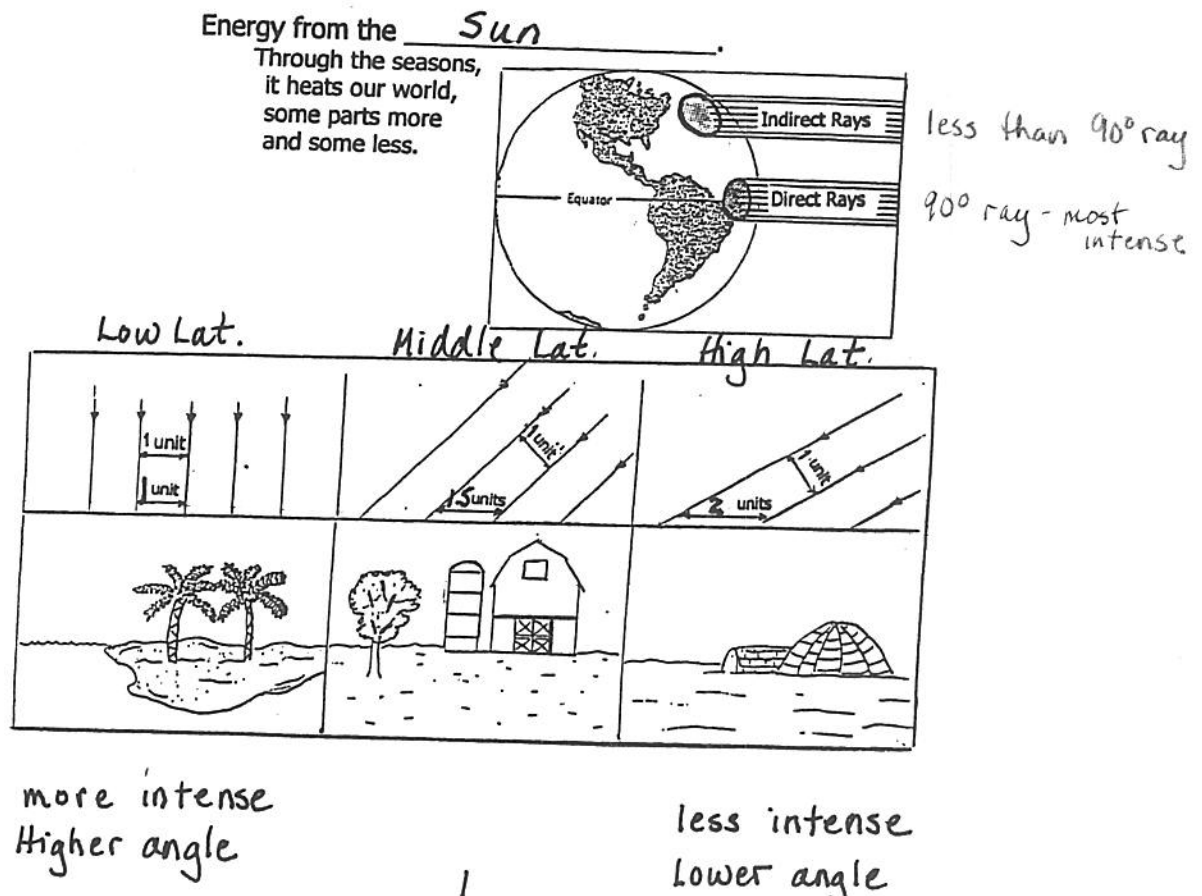 Energy from the Sun.
Through the seasons,
it heats our world,
some parts more
and some less.
Indirect Rays
less than 90° ray
Equator
Direct Rays
90° ray - most
intense
Low Lat.
Middle Lat.
High Lat.
1 unit
1 unit
1 unit
1.5 units
1 unit
2 units
more intense
Higher angle
less intense
Lower angle